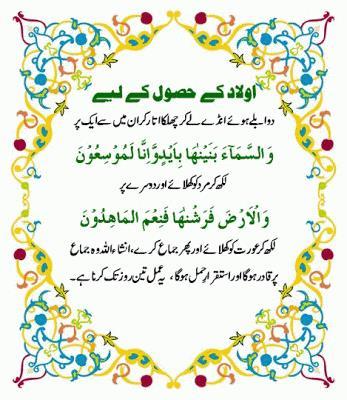 اولاد کے حصول کے لیے
دو ابلے ہوئے انڈے لے کر چھلکا اتار کر ان میں سے ایک پر
وَالسَّمَآءَ بَنَيْنٰهَا بِاَيْدٍ وَّاِنَّا لَمُوْسِعُوْنَ
لکھ کر مرد کو کھلائے اور دوسرے پر
وَالْاَرْضَ فَرَشْنٰهَا فَنِعْمَ الْمَاهِدُوْنَ
لکھ کر عورت کو کھلائے اور پھر جماع کرے، انشاء اللہ وہ جماع
پر قادر ہوگا اور استقرار حمل ہوگا، یہ عمل تین روز تک کرنا ہے۔